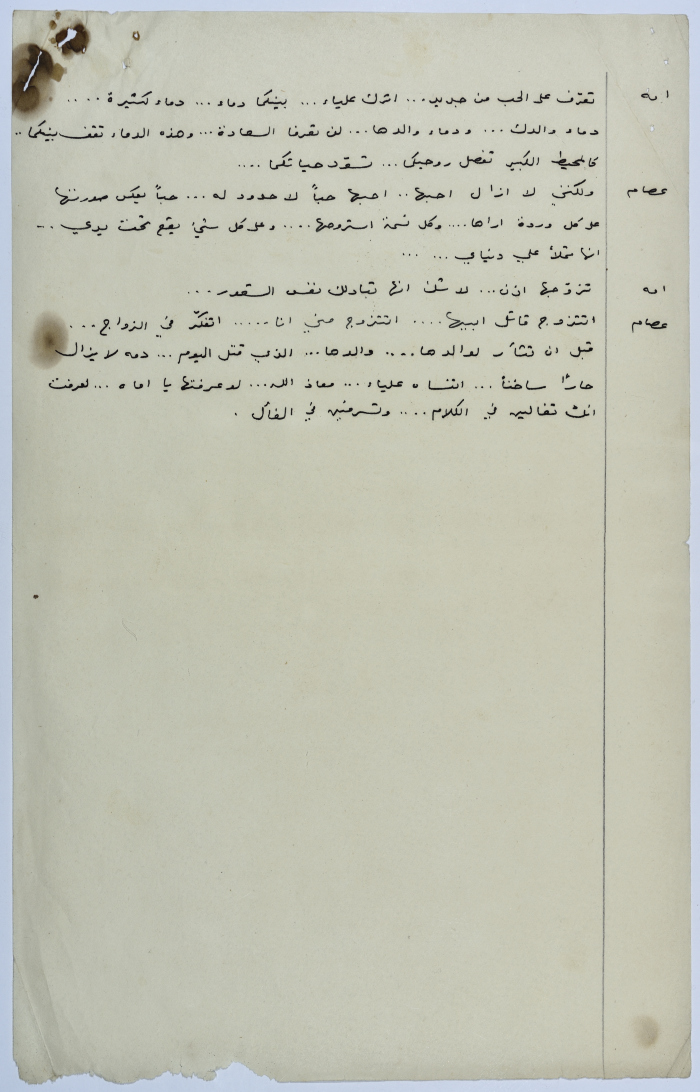 امه تعرّف على الحب من جديد... اترك علياء... بينكما دماء... دماء كثيرة....
دماء والدك... ودماء والدها... لن تعرفا السعادة... وهذه الدماء تقف بينكما..
كالمحيط الكبير تفصل روحيكما... تسوّد حياتكما....
عصام ولكنني لا ازال احبها.. احبها حباً لا حدود له... حباً يعكس صورتها
على كل وردة اراها.... وكل نسمة استروحها.... وعلى كل شيء يقع تحت يدي...
انها تملأ علي دنياي... ...
امه تزوّجها اذن... لا شك انها تبادلك نفس الشعور...
عصام اتتزوج قاتل ابيها.... اتتزوج مني انا..... اتفكّر في الزواج...
قبل ان تثأر لوالدها.... والدها... الذي قتل اليوم... دمه لا يزال
حارّا ساخناً... اتنساه علياء... معاذ الله... لو عرفتها يا اماه... لعرفت
انك تغالين في الكلام.... وتسرفين في الفأل.